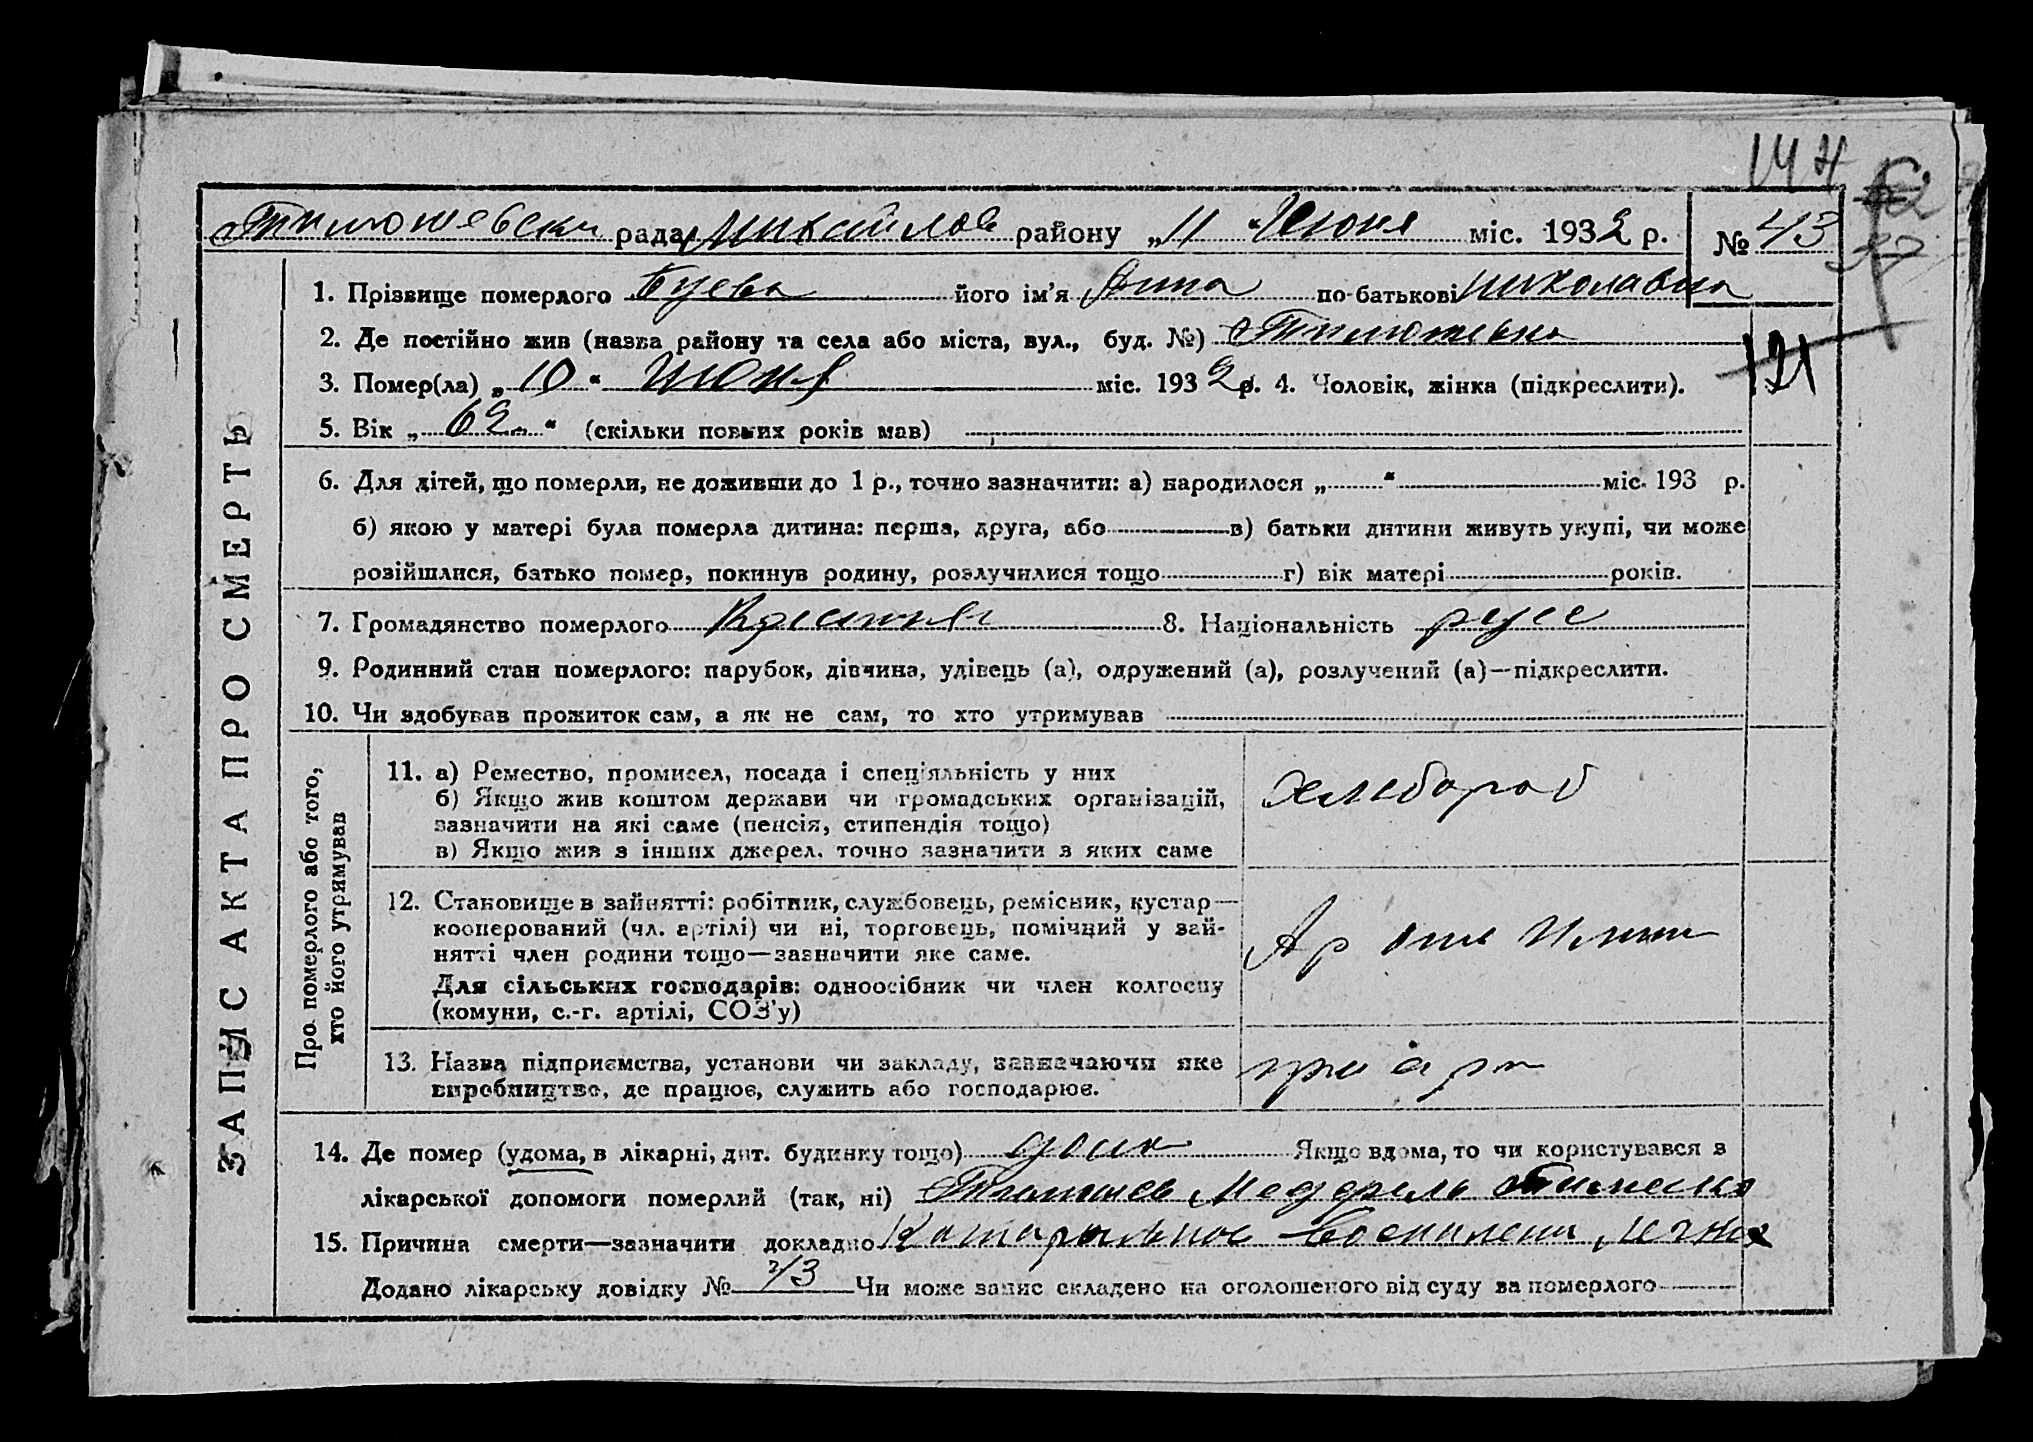 144
Тимошевски рада Михайлов району „11 “ Июня міс. 1932 р. № 43
37
1. Прізвище померлого Буева його ім'я Анна по-батькові Николавна
2. Де постійно жив (назва району та села або міста, вул., буд. №) Тимошевка
121
3. Помер(ла) „10“ Июня міс. 1932 р. 4. Чоловік, жінка (підкреслити).
5. Вік „62“ (скільки повних років мав)
6. Для дітей, що померли, не доживши до 1 р., точно зазначити: а) народилося „ “ міс. 193 р.
б) якою у матері була померла дитина: перша, друга, або в) батьки дитини живуть укупі, чи може
розійшлися, батько помер, покинув родину, розлучилися тощо г) вік матері років.
7. Громадянство померлого 8. Національність русс
9. Родинний стан померлого: парубок, дівчина, удівець (а), одружений (а), розлучений (а)—підкреслити.
10. Чи здобував прожиток сам, а як не сам, то хто утримував
ЗАПИС АКТА ПРО СМЕРТЬ
Про померлого або того,
хто його утримував
11. а) Ремество, промисел, посада і спеціяльність у них
б) Якщо жив коштом держави чи громадських організацій,
зазначити на які саме (пенсія, стипендія тощо)
в) Якщо жив з інших джерел, точно зазначити з яких саме
хлебороб
12. Становище в зайнятті: робітник, службовець, ремісник, кустар—
кооперований (чл. артілі) чи ні, торговець, помічний у зай-
нятті член родини тощо—зазначити яке саме.
Для сільських господарів: одноосібник чи член колгоспу
(комуни, с.-г. артілі, СОЗ'у)
Ар
13. Назва підприємства, установи чи закладу, зазначаючи яке
виробництво, де працює, служить або господарює.
14. Де помер (удома, в лікарні, дит. будинку тощо) дома Якщо вдома, то чи користувався з
лікарської допомоги померлий (так, ні)
15. Причина смерти—зазначити докладно Катаральное воспаление легких
Додано лікарську довідку № 2/3 Чи може запис складено на оголошеного від суду за померлого